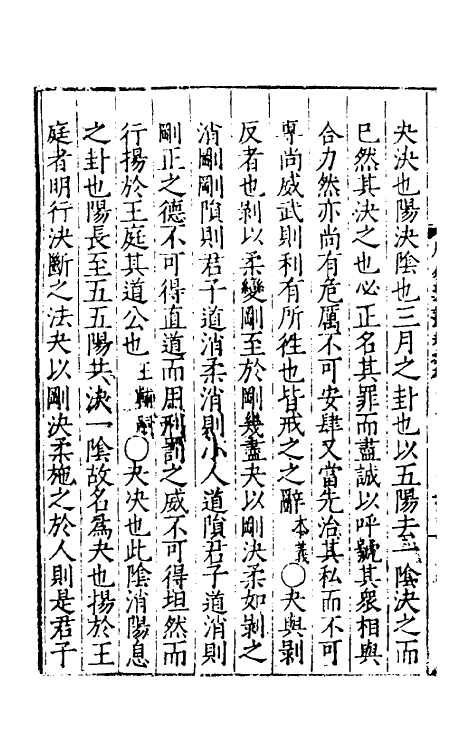 夬決也陽決陰也三月之卦也以五陽去一陰決之而
已然其決之也必正名其罪而盡誠以呼號其衆相與
合力然亦尚有危厲不可安肆又當先治其私而不可
專尚威武則利有所往也皆戒之之辭本義〇夬與剝
反者也剝以柔變剛至於剛幾盡夬以剛決柔如剝之
消剛剛隕則君子道消柔消則小人道隕君子道消則
剛正之德不可得直道而用刑罰之威不可得坦然而
行揚於王庭其道公也王輔嗣〇夬決也此陰消陽息
之卦也陽長至五五陽共決一陰故名爲夬也揚於王
庭者明行決斷之法夬以剛決柔施之於人則是君子